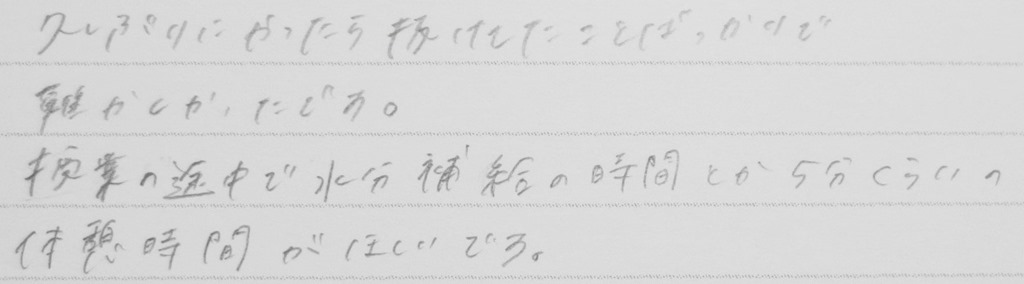 久しぶりにやったら抜けてたことばっかりで
難かしかったです。
授業の途中で水分補給の時間とか5分くらいの
休憩時間がほしいです。